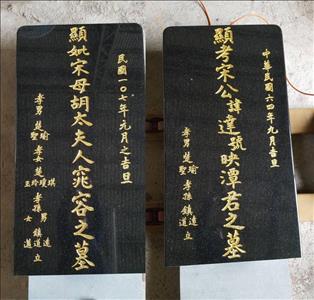 中華民國六四年九月吉旦
顯考宋公諱達號映潭君之墓
孝男 楚 瑜
聖
孝孫 鎮 遠
道
立
民國一〇七年元月之吉旦
顯妣宋母胡太夫人窕容之墓
孝男 楚 瑜
聖
孝女 楚 瓊 琪
玉玲
孝孫 男 鎮 遠
道
女
立